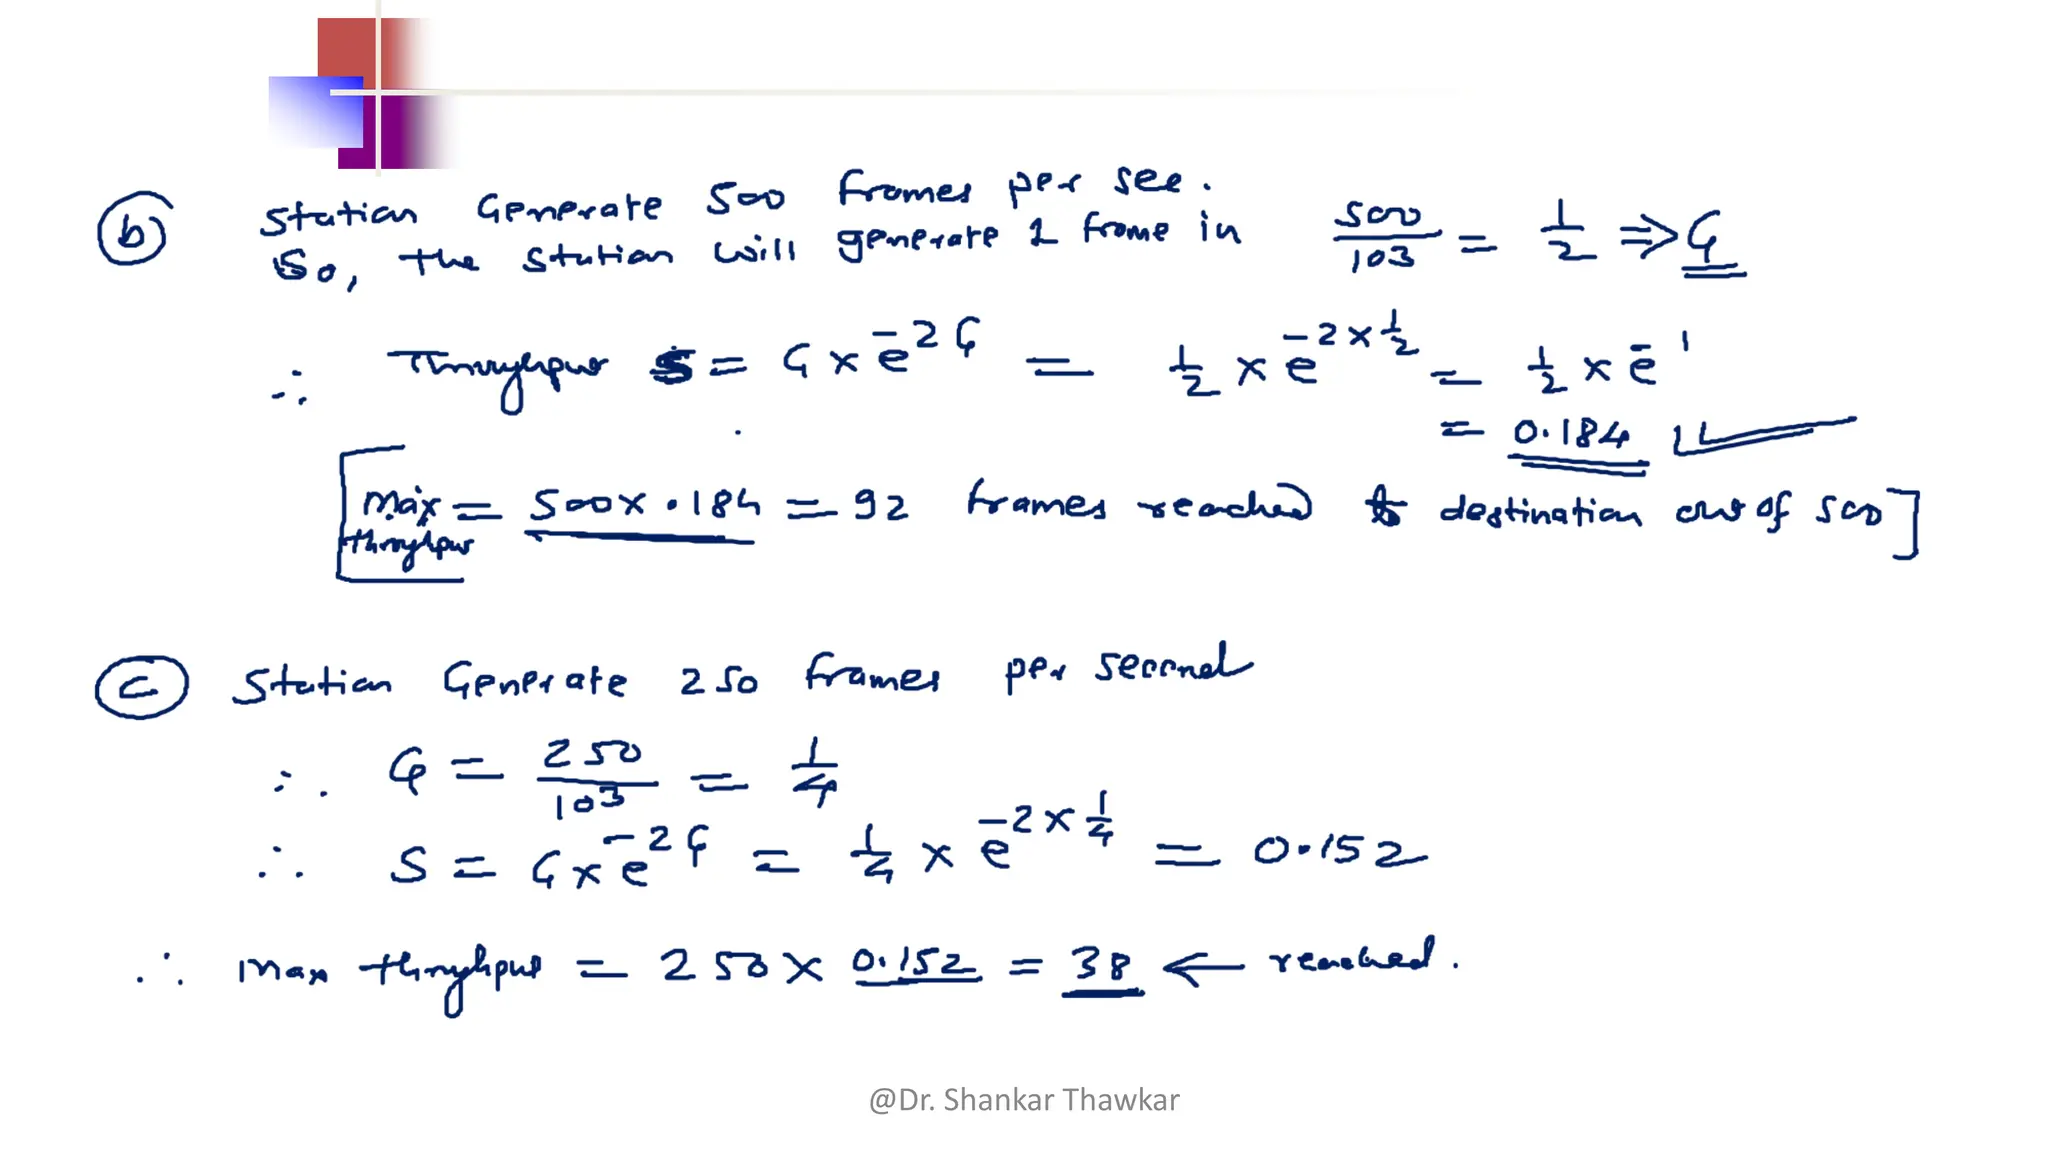 (b) Station Generate 500 frames per sec.
So, the station will generate 1 frame in 500/103 = 1/2 ⇒ G
∴ Throughput S = G × e^-2G = 1/2 × e^-2×1/2 = 1/2 × e^-1
= 0.184
[Max throughput = 500×.184 = 92 frames reached to destination out of 500]
(c) Station Generate 250 frames per second
∴ G = 250/103 = 1/4
∴ S = G × e^-2G = 1/4 × e^-2×1/4 = 0.152
∴ max throughput = 250 × 0.152 = 38 ← reached.
@Dr. Shankar Thawkar